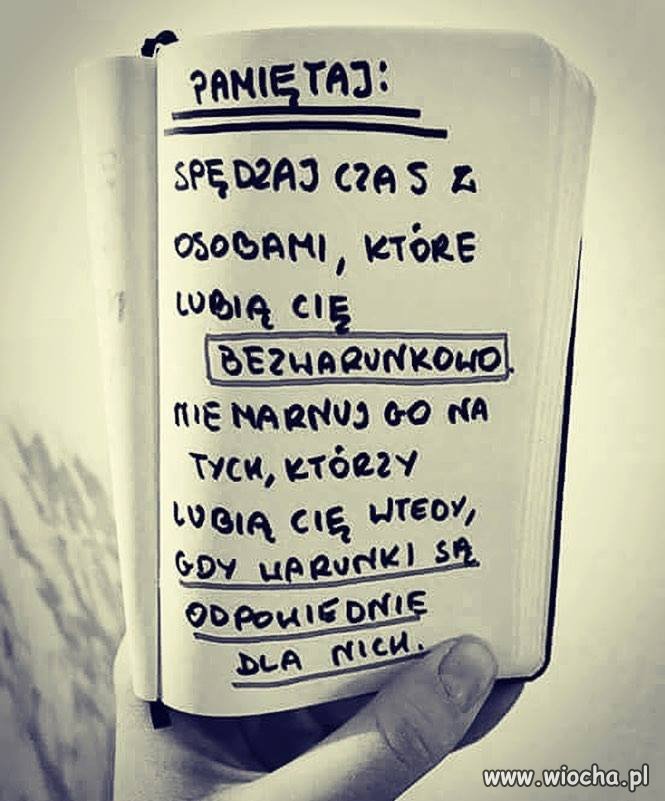 PAMIĘTAJ:
SPĘDZAJ CZAS Z
OSOBAMI, KTÓRE
LUBIĄ CIĘ
BEZWARUNKOWO.
NIE MARNUJ GO NA
TYCH, KTÓRZY
LUBIĄ CIĘ WTEDY,
GDY WARUNKI SĄ
ODPOWIEDNIĘ
DLA NICH.
www.wiocha.pl